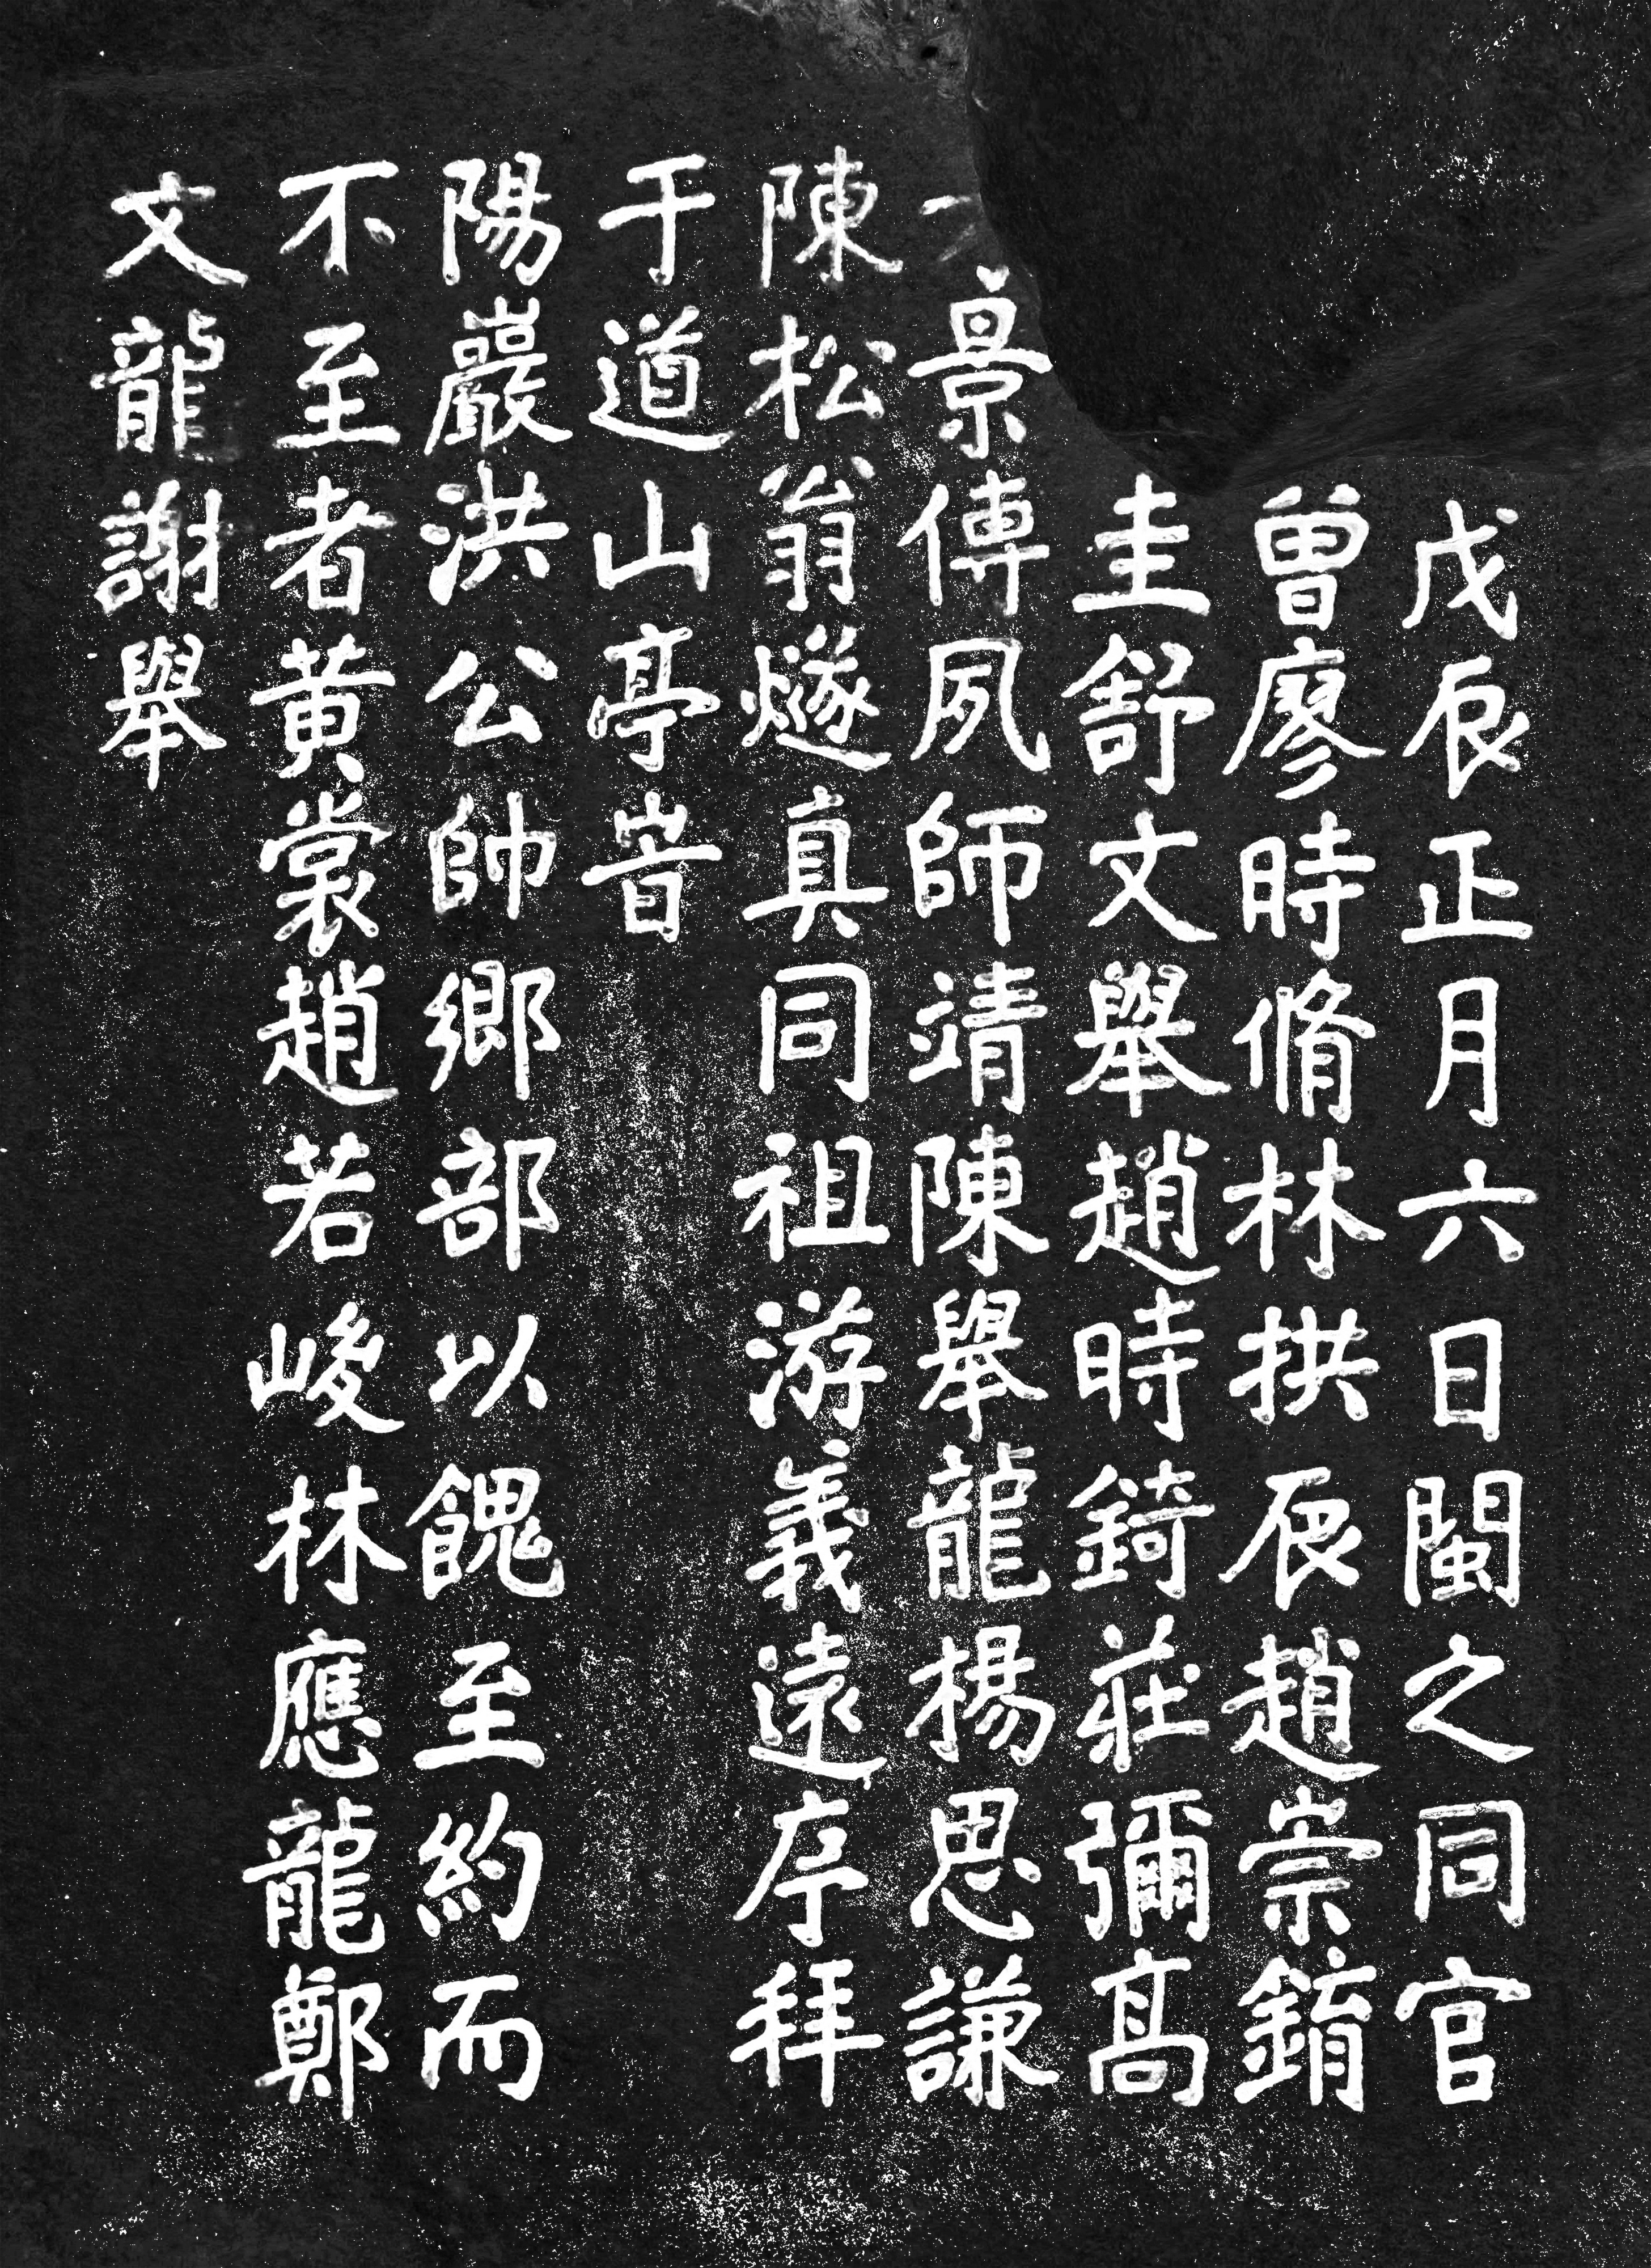 戊辰正月六日閩之同官
曾廖時脩林拱辰趙崇錥
圭舒文舉趙時錡莊彌高
景傳夙師靖陳舉龍楊思謙
陳松翁燧真同祖游義遠序拜
于道山亭峕
陽巖洪公帥鄉部以餽至約而
不至者黃裳趙若峻林應龍鄭
文龍謝舉